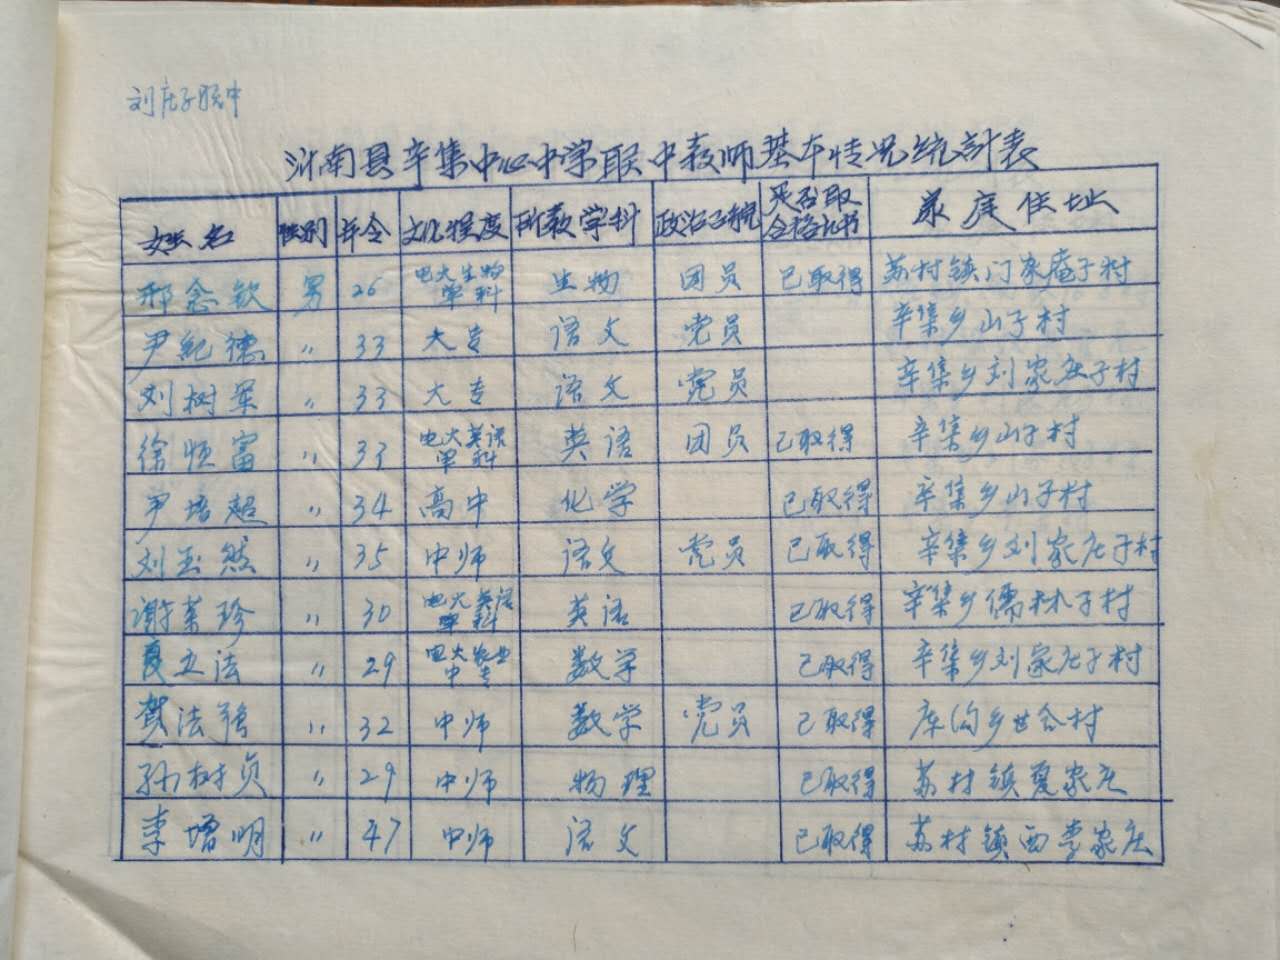 刘庄子联中
沂南县辛集中心中学联中教师基本情况统计表
姓名 性别 年令 文化程度 所教学科 政治面貌 是否取合格证书 家庭住址
邢念钦 男 26 电大生物单科 生物 团员 已取得 苏村镇门家庵子村
尹纪德 〃 33 大专 语文 党员 辛集乡山子村
刘树军 〃 33 大专 语文 党员 辛集乡刘家庄子村
徐恒富 〃 33 电大英语单科 英语 团员 已取得 辛集乡山子村
尹培超 〃 34 高中 化学 已取得 辛集乡山子村
刘玉然 〃 35 中师 语文 党员 已取得 辛集乡刘家庄子村
谢荣珍 〃 30 电大英语单科 英语 已取得 辛集乡儒林子村
夏立法 〃 29 电大农业中专 数学 已取得 辛集乡刘家庄子村
贺法强 〃 32 中师 数学 党员 已取得 库沟乡世合村
孙树贞 〃 29 中师 物理 已取得 苏村镇夏家庄
李增明 〃 47 中师 语文 已取得 苏村镇西李家庄